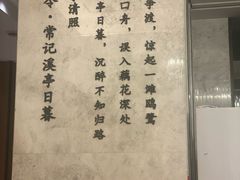 争渡，惊起一滩鸥鹭
回舟，误入藕花深处
亭日暮，沉醉不知归路
清照
令·常记溪亭日暮